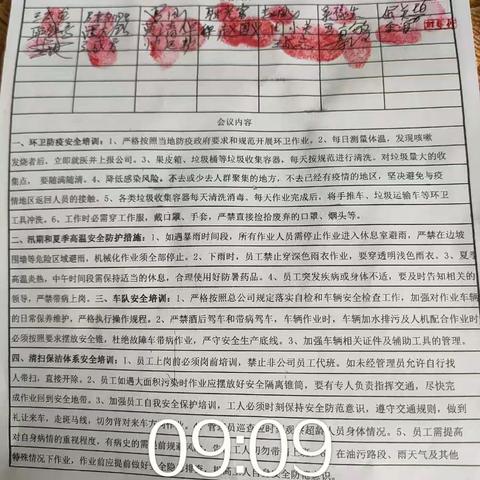 会议内容
一、环卫防疫安全培训：1、严格按照当地防疫政府要求和规范开展环卫作业。2、每日测量体温，发现咳嗽
发烧者后，立即就医并上报公司。3、果皮箱、垃圾桶等垃圾收集容器，每天按规范进行清洗。对垃圾量大的收
集点，要随满随清。4、降低感染风险。不去或少去人群聚集的地方，不去已经有疫情的地区，坚决避免与疫
情地区返回人员的接触。5、各类垃圾收集容器每天清洗消毒。每天作业完成后，将手推车、垃圾运输车等环卫
工具冲洗。6、工作时必需穿工作服，戴口罩、手套，严禁直接捡拾废弃的口罩、烟头等。
二、汛期和夏季高温安全防护措施：1、如遇暴雨时间段，所有作业人员需停止作业进入休息室避雨，严禁在边坡
围墙等危险区域避雨，机械化作业须全部停工。2、下雨时，员工禁止穿深色雨衣作业，要穿透明浅色雨衣。3、夏季
高温炎热，中午时间段需保持适当的休息，合理使用好防暑药品。4、员工突发疾病或身体不适，要及时告知相关的
领导，严禁带病上岗。三、车队安全培训：1、严格按照总公司规定落实自检和车辆安全检查工作，加强对作业车辆
的日常保养维护，严格执行操作规程。2、严禁酒后驾车和带病驾车，车辆作业时，车辆加水排污及人机配合作业时
必须按照要求摆放安全锥，杜绝故障车带病作业，严守安全生产底线。3、加强车辆相关证件及辅助工具的管理。
四、清扫保洁体系安全培训：1、员工上岗前必须岗前培训，禁止非公司员工代班。如未经管理员允许自行找
人带扫，直接开除。2、员工如遇大面积污染时作业应摆放好安全隔离锥筒，要有专人负责指挥交通，尽快完
成作业回到安全地带。3、加强员工自我安全保护培训，工人必须时刻保持安全防范意识，遵守交通规则，做到
礼让来车，走斑马线，切勿背对来车方
管理员巡查
员工身体情况。5、员工需提高
对自身病情的重视程度，有病史的需
工人切勿带
在油污路段、雨天气及其他
特殊情况下作业，作业前应提前做好安全隐
排查，提高工人自身安全防范意识。
09:09